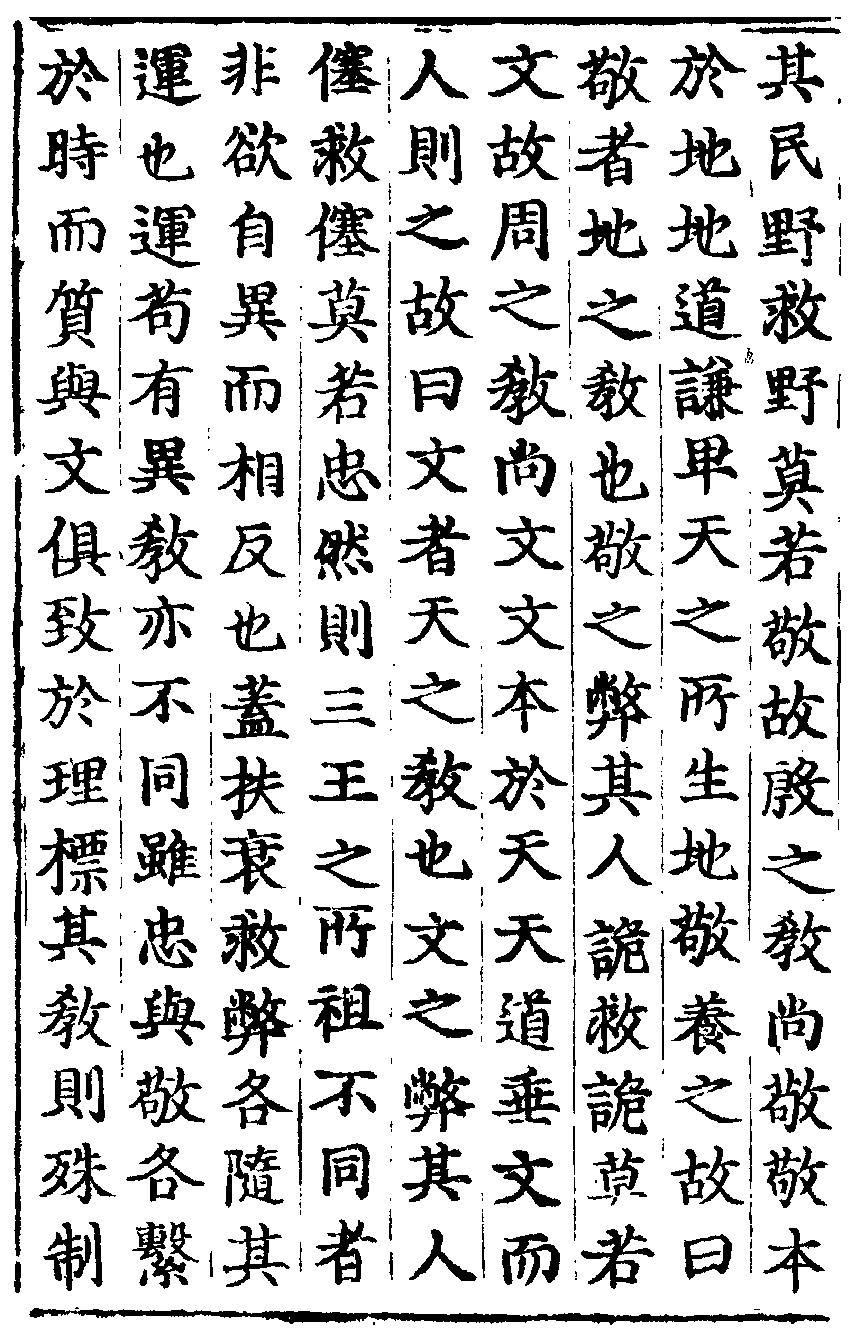 其民野救野莫若敬故殷之教尚敬敬本
於地地道謙卑天之所生地敬養之故曰
敬者地之教也敬之弊其人詭救詭莫若
文故周之教尚文文本於天天道垂文而
人則之故曰文者天之教也文之弊其人
僿救僿莫若忠然則三王之所祖不同者
非欲自異而相反也蓋扶衰救弊各隨其
運也運苟有異教亦不同雖忠與敬各繫
於時而質與文俱致於理標其教則殊制